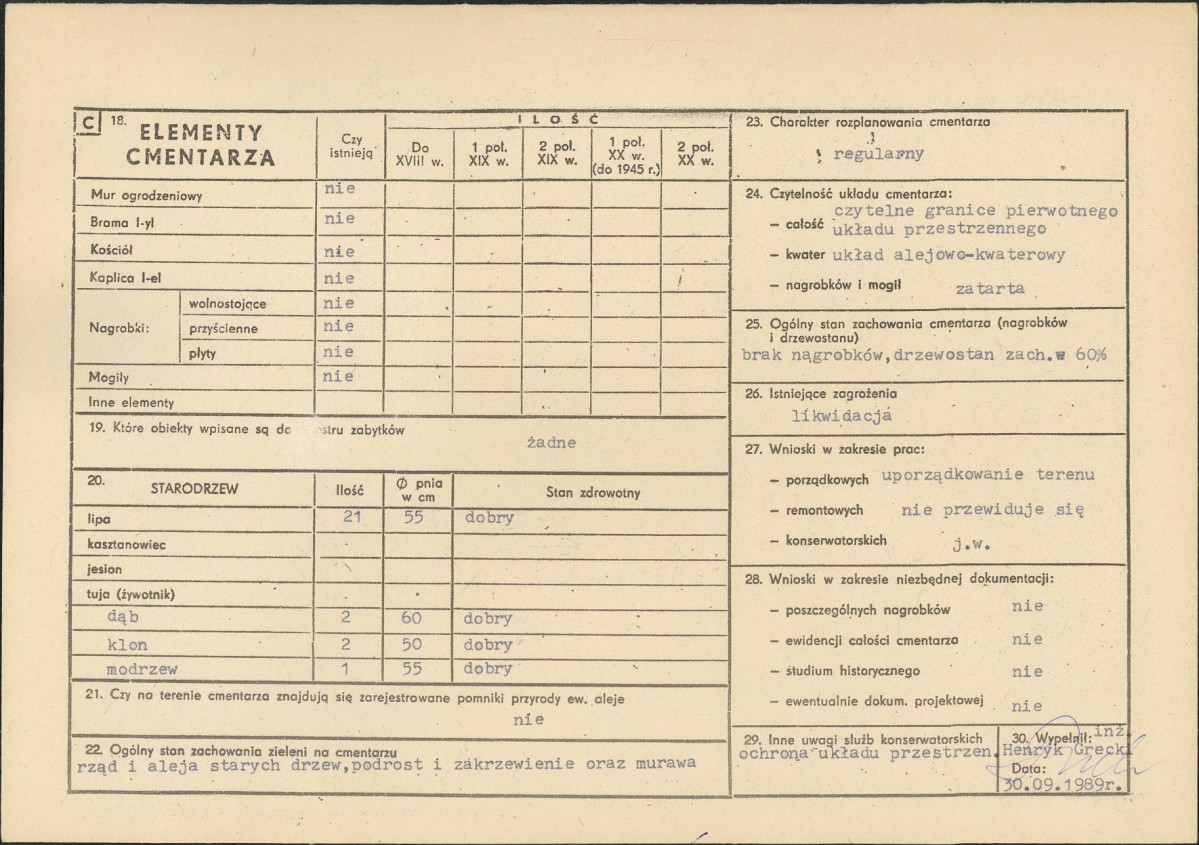 C 18. ELEMENTY
CMENTARZA
Czy
istnieją
ILOŚĆ
Do
XVIII w.
1 poł.
XIX w.
2 poł.
XIX w.
1 poł.
XX w.
(do 1945 r.)
2 poł.
XX w.
Mur ogrodzeniowy nie
Brama I-yl nie
Kościół nie
Kaplica I-el nie
Nagrobki:
wolnostojące nie
przyścienne nie
płyty nie
Mogiły nie
Inne elementy
19. Które obiekty wpisane są do stru zabytków
żadne
20. STARODRZEW Ilość Ø pnia
w cm Stan zdrowotny
lipa 21 55 dobry
kasztanowiec
jesion
tuja (żywotnik)
dąb 2 60 dobry
klon 2 50 dobry
modrzew 1 55 dobry
21. Czy na terenie cmentarza znajdują się zarejestrowane pomniki przyrody ew. aleje
nie
22. Ogólny stan zachowania zieleni na cmentarzu
rząd i aleja starych drzew,podrost i zakrzewienie oraz murawa
23. Charakter rozplanowania cmentarza
regularny
24. Czytelność układu cmentarza:
– całość czytelne granice pierwotnego
układu przestrzennego
– kwater układ alejowo-kwaterowy
– nagrobków i mogił zatarta
25. Ogólny stan zachowania cmentarza (nagrobków
i drzewostanu)
brak nagrobków,drzewostan zach.w 60%
26. Istniejące zagrożenia
likwidacja
27. Wnioski w zakresie prac:
– porządkowych uporządkowanie terenu
– remontowych nie przewiduje się
– konserwatorskich j.w.
28. Wnioski w zakresie niezbędnej dokumentacji:
– poszczególnych nagrobków nie
– ewidencji całości cmentarza nie
– studium historycznego nie
– ewentualnie dokum. projektowej nie
29. Inne uwagi służb konserwatorskich
ochrona układu przestrzen.
30. Wypełnił: inż.
Henryk Grecki
Data:
30.09.1989r.